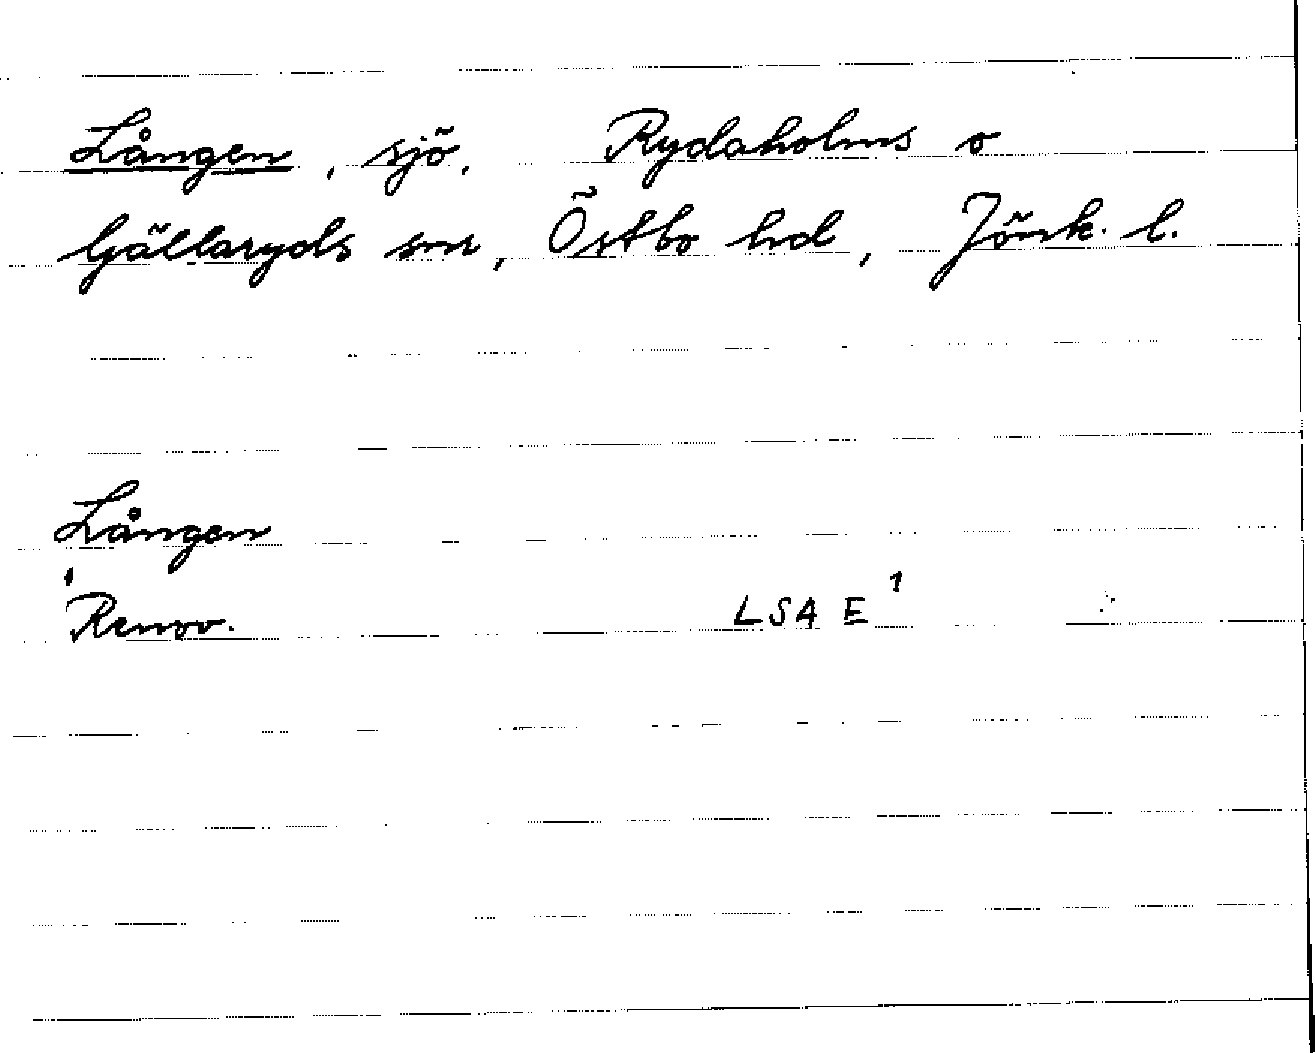 Lången, sjö. Rydaholms o
Gällaryds snr, Östbo hd, Jönk. l.
Lången
1
Renov. LSA E 1